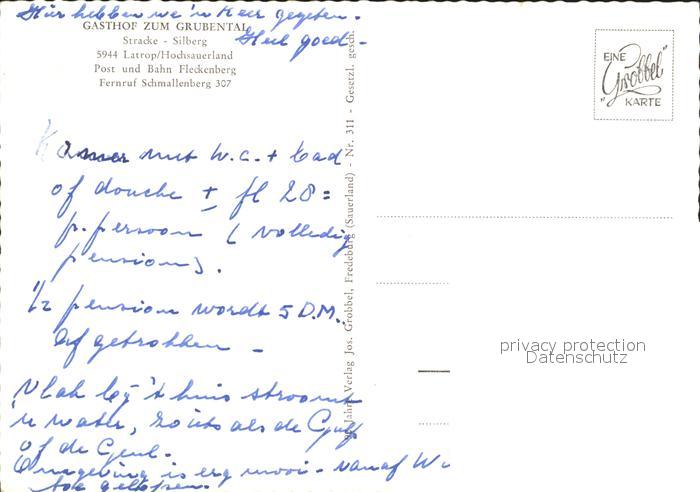 Hier hebben we 'n keer gegeten.
Heel goed -
GASTHOF ZUM GRUBENTAL
Stracke - Silberg
5944 Latrop/Hochsauerland
Post und Bahn Fleckenberg
Fernruf Schmallenberg 307
EINE
"Grobbel"
KARTE
Kamer met W.C. + bad
of douche ± fl 28 =
p. persoon ( volledig
pension).
1/2 pension wordt 5 D.M.
afgetrokken -
Vlak bij 't huis stroomt
'n water, zoiets als de Gulp
of de Geul.
Omgeving is erg mooi - vanaf
gelopen.
Jahre Verlag Jos. Grobbel, Fredeburg (Sauerland) - Nr. 311 - Gesetzl. gesch.
privacy protection
Datenschutz